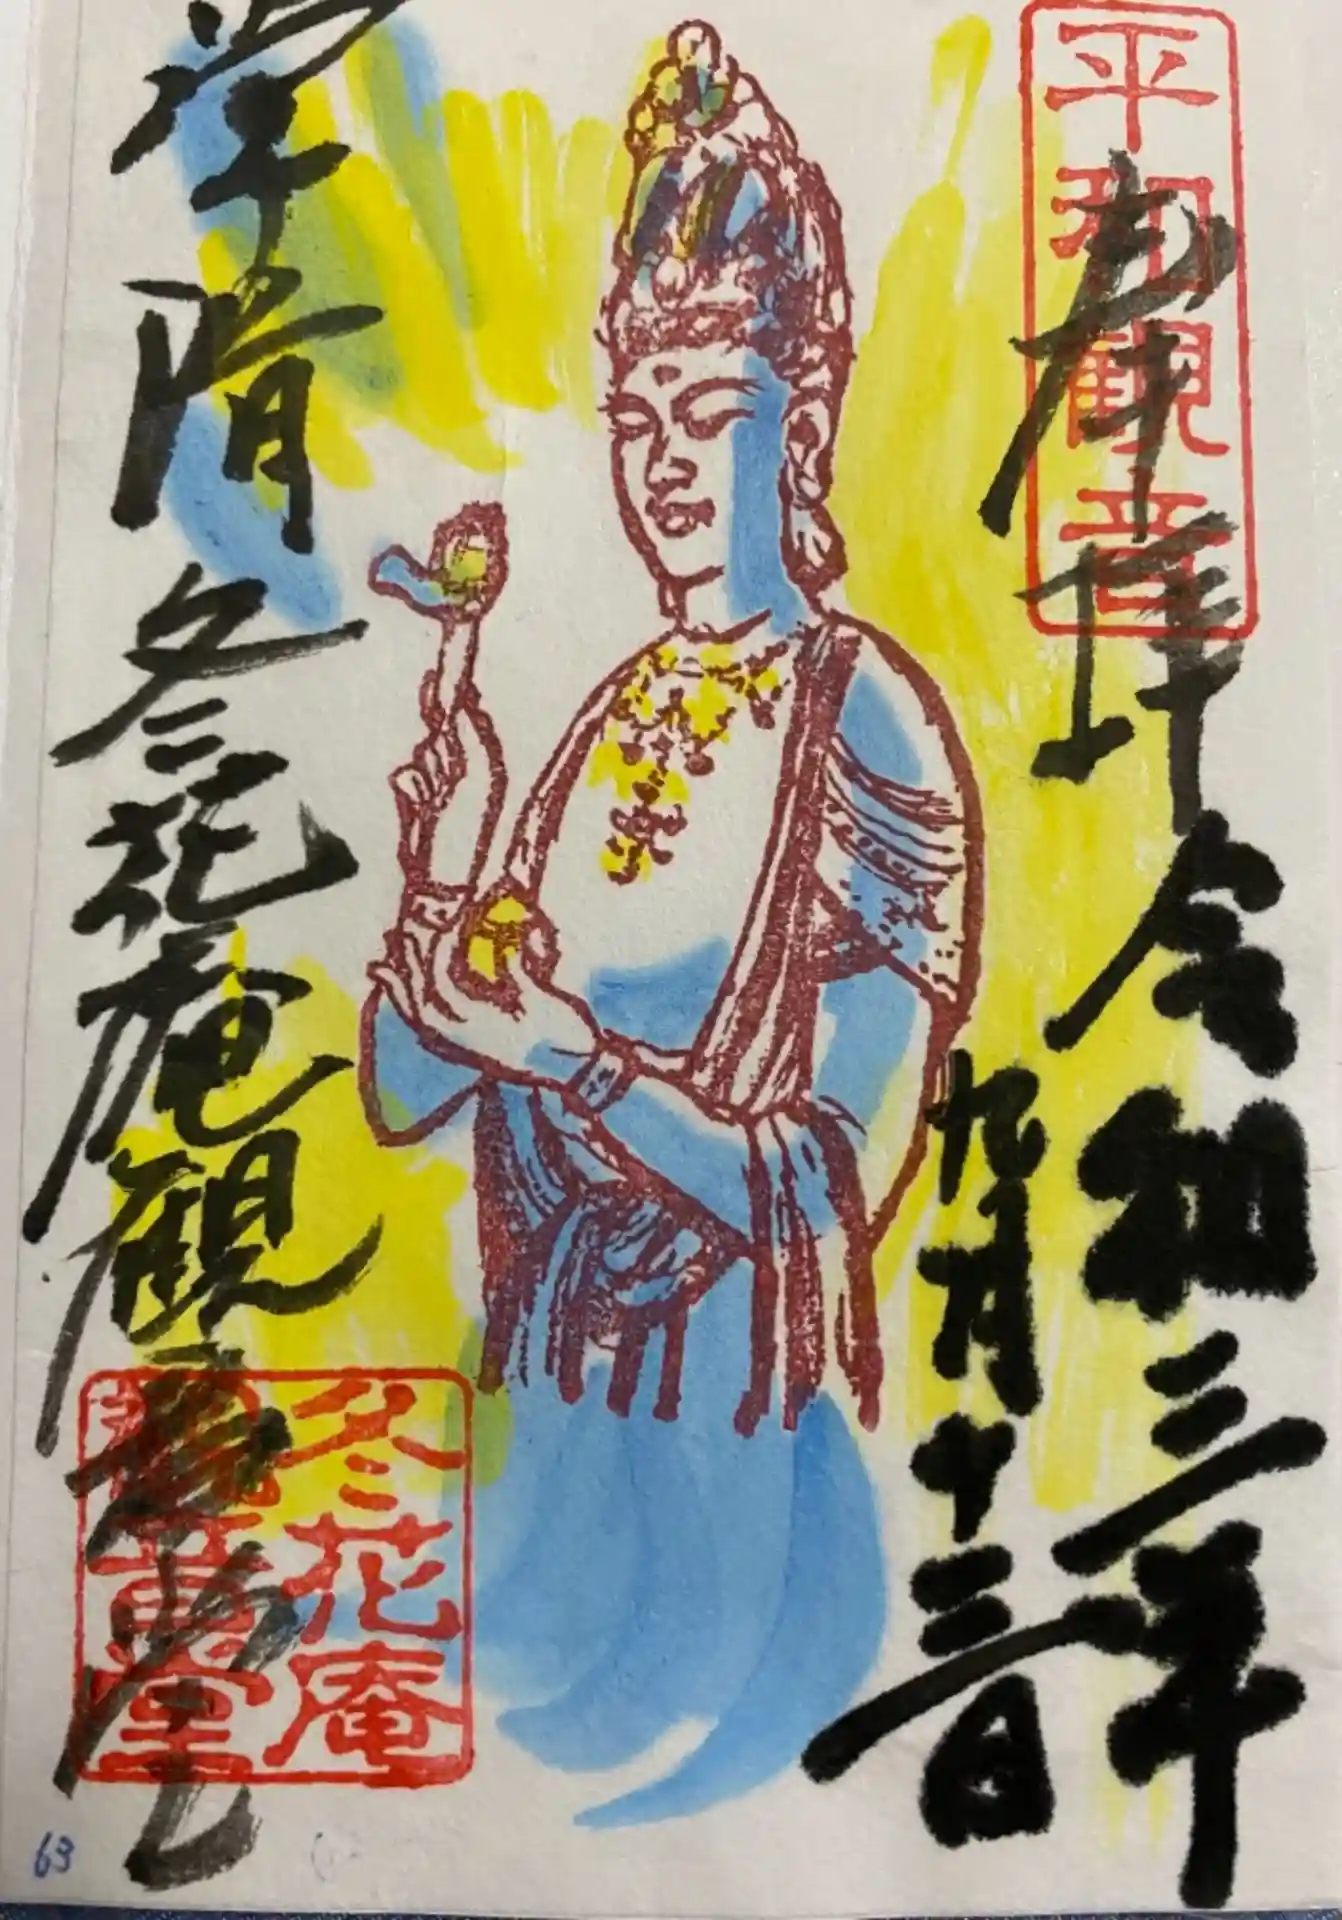 平和観音
奉拝
令和三年
九月十三日
岸晴
冬花庵観音堂
冬花庵
観音堂
63